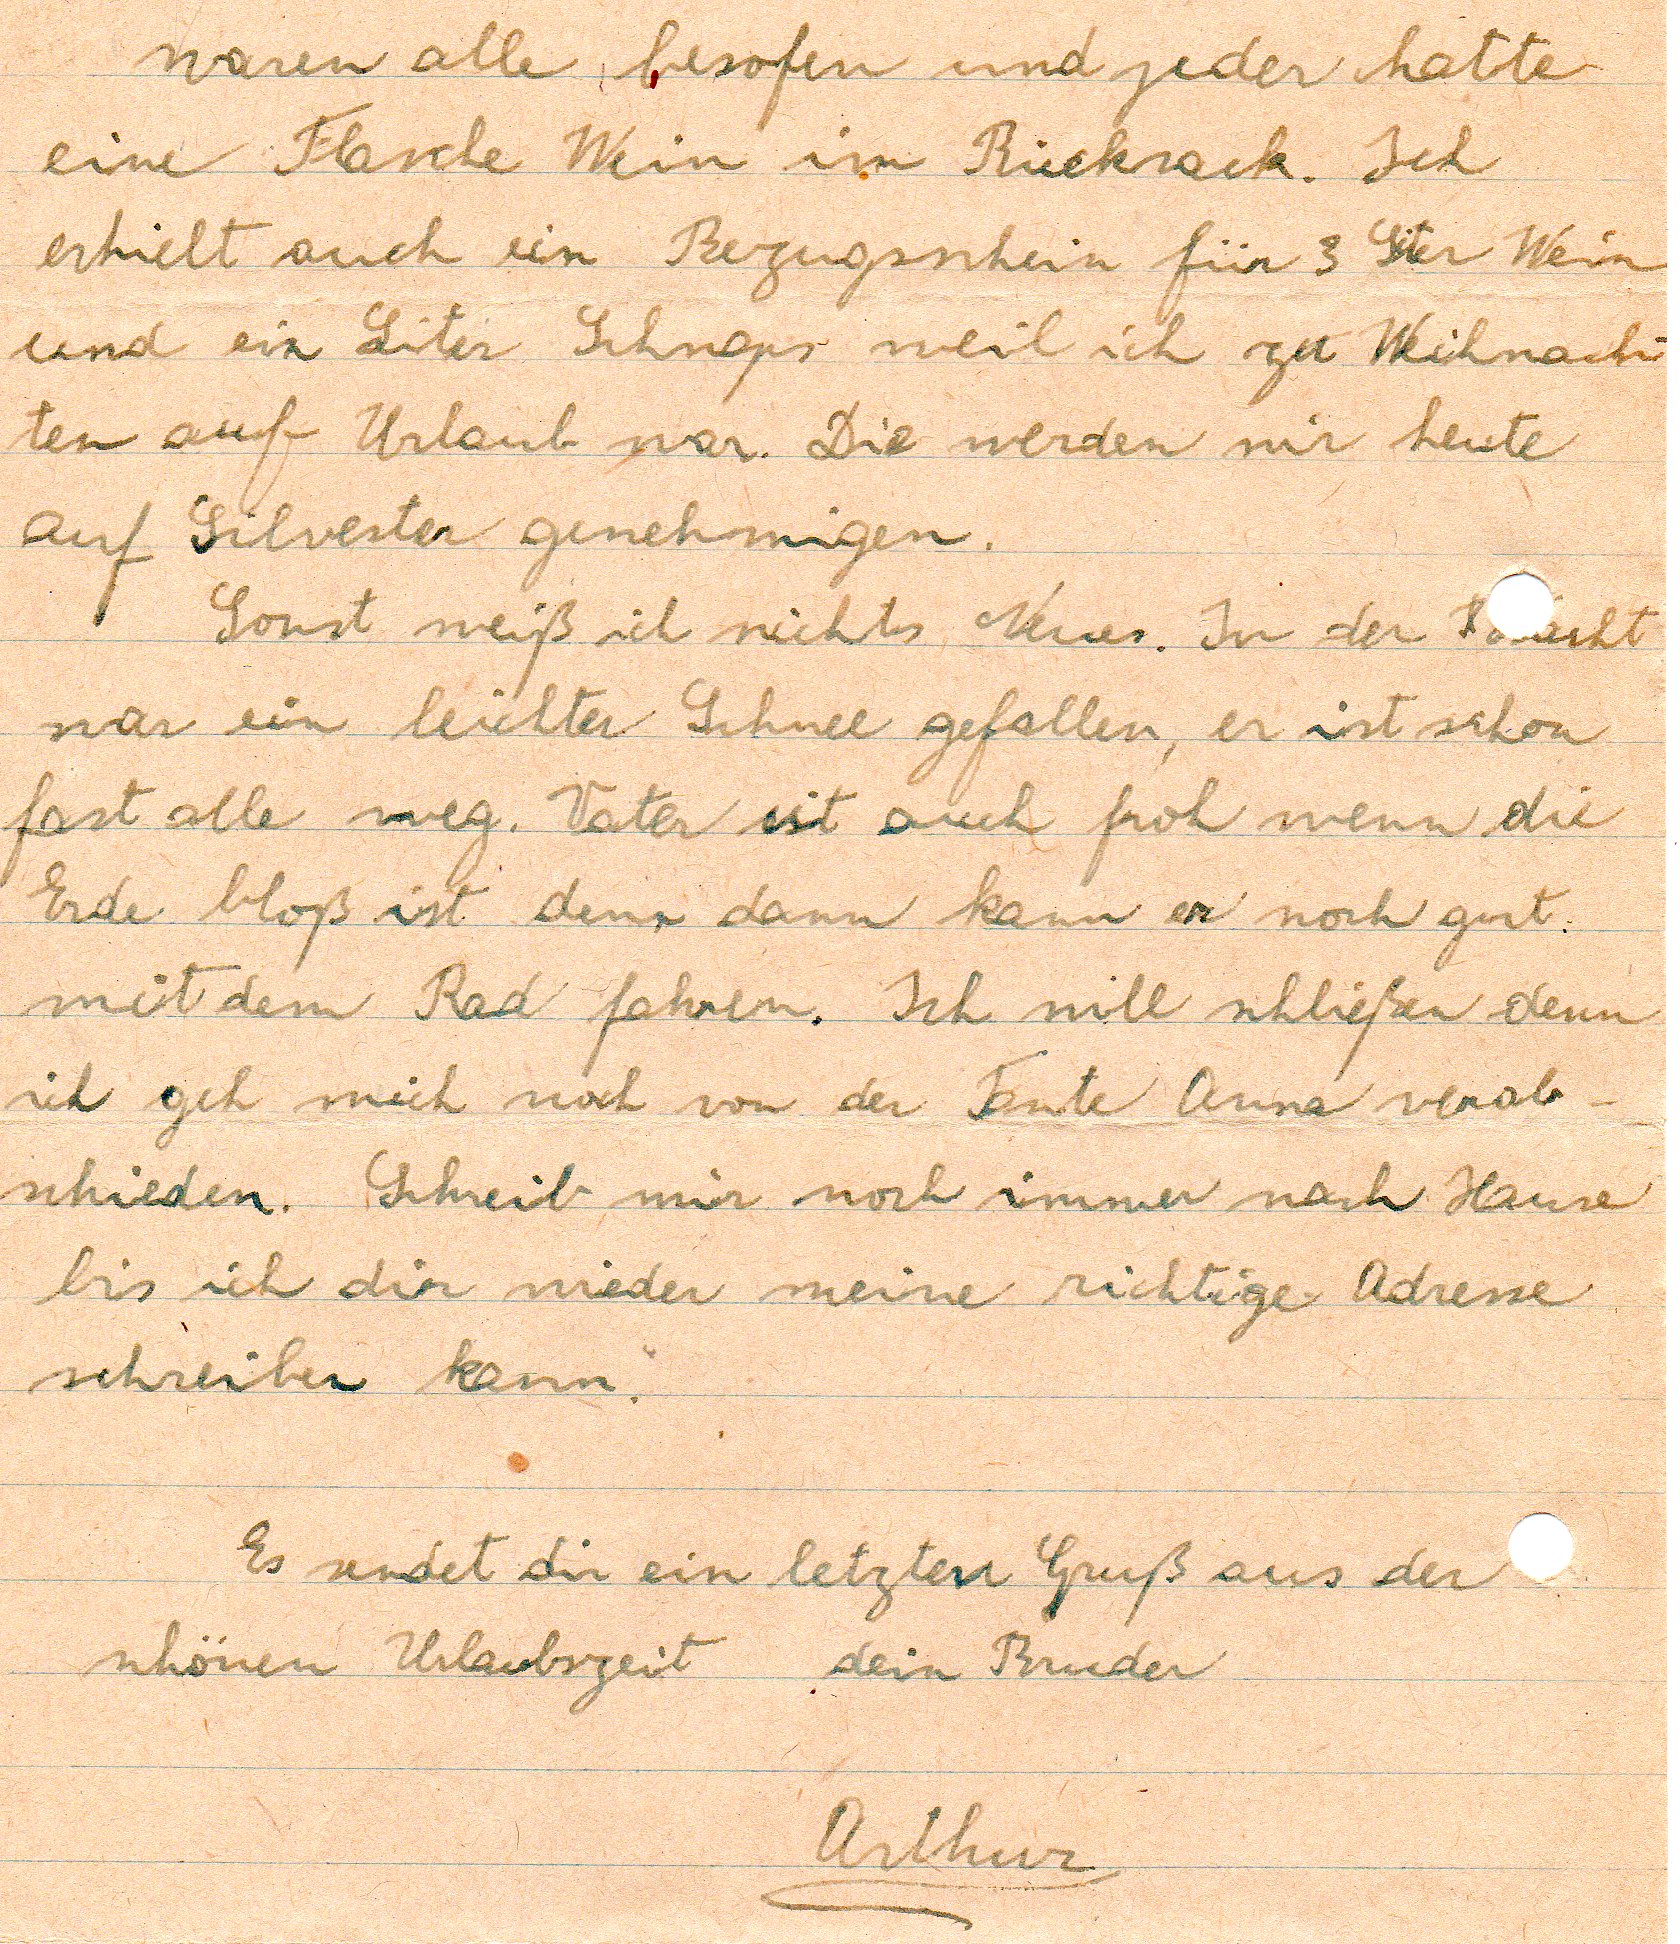 waren alle besofen und jeder hatte
eine Flasche Wein im Rucksack. Ich
erhielt auch ein Bezugsschein für 3 Liter Wein
und ein Liter Schnaps weil ich zu Weihnach-
ten auf Urlaub war. Die werden wir heute
auf Silvester genehmigen.
Sonst weiß ich nichts Neues. In der
war ein leichter Schnee gefallen, er ist schon
fast alle weg. Vater ist auch froh wenn die
Erde bloß ist denn dann kann er noch gut
mit dem Rad fahren. Ich will schließen denn
ich geh mich noch von der Tante Anna verab-
schieden. Schreib mir noch immer nach Hause
bis ich dir wieder meine richtige Adresse
schreiben kann.
Es sendet dir ein letzten Gruß aus der
schönen Urlaubszeit dein Bruder
Arthur